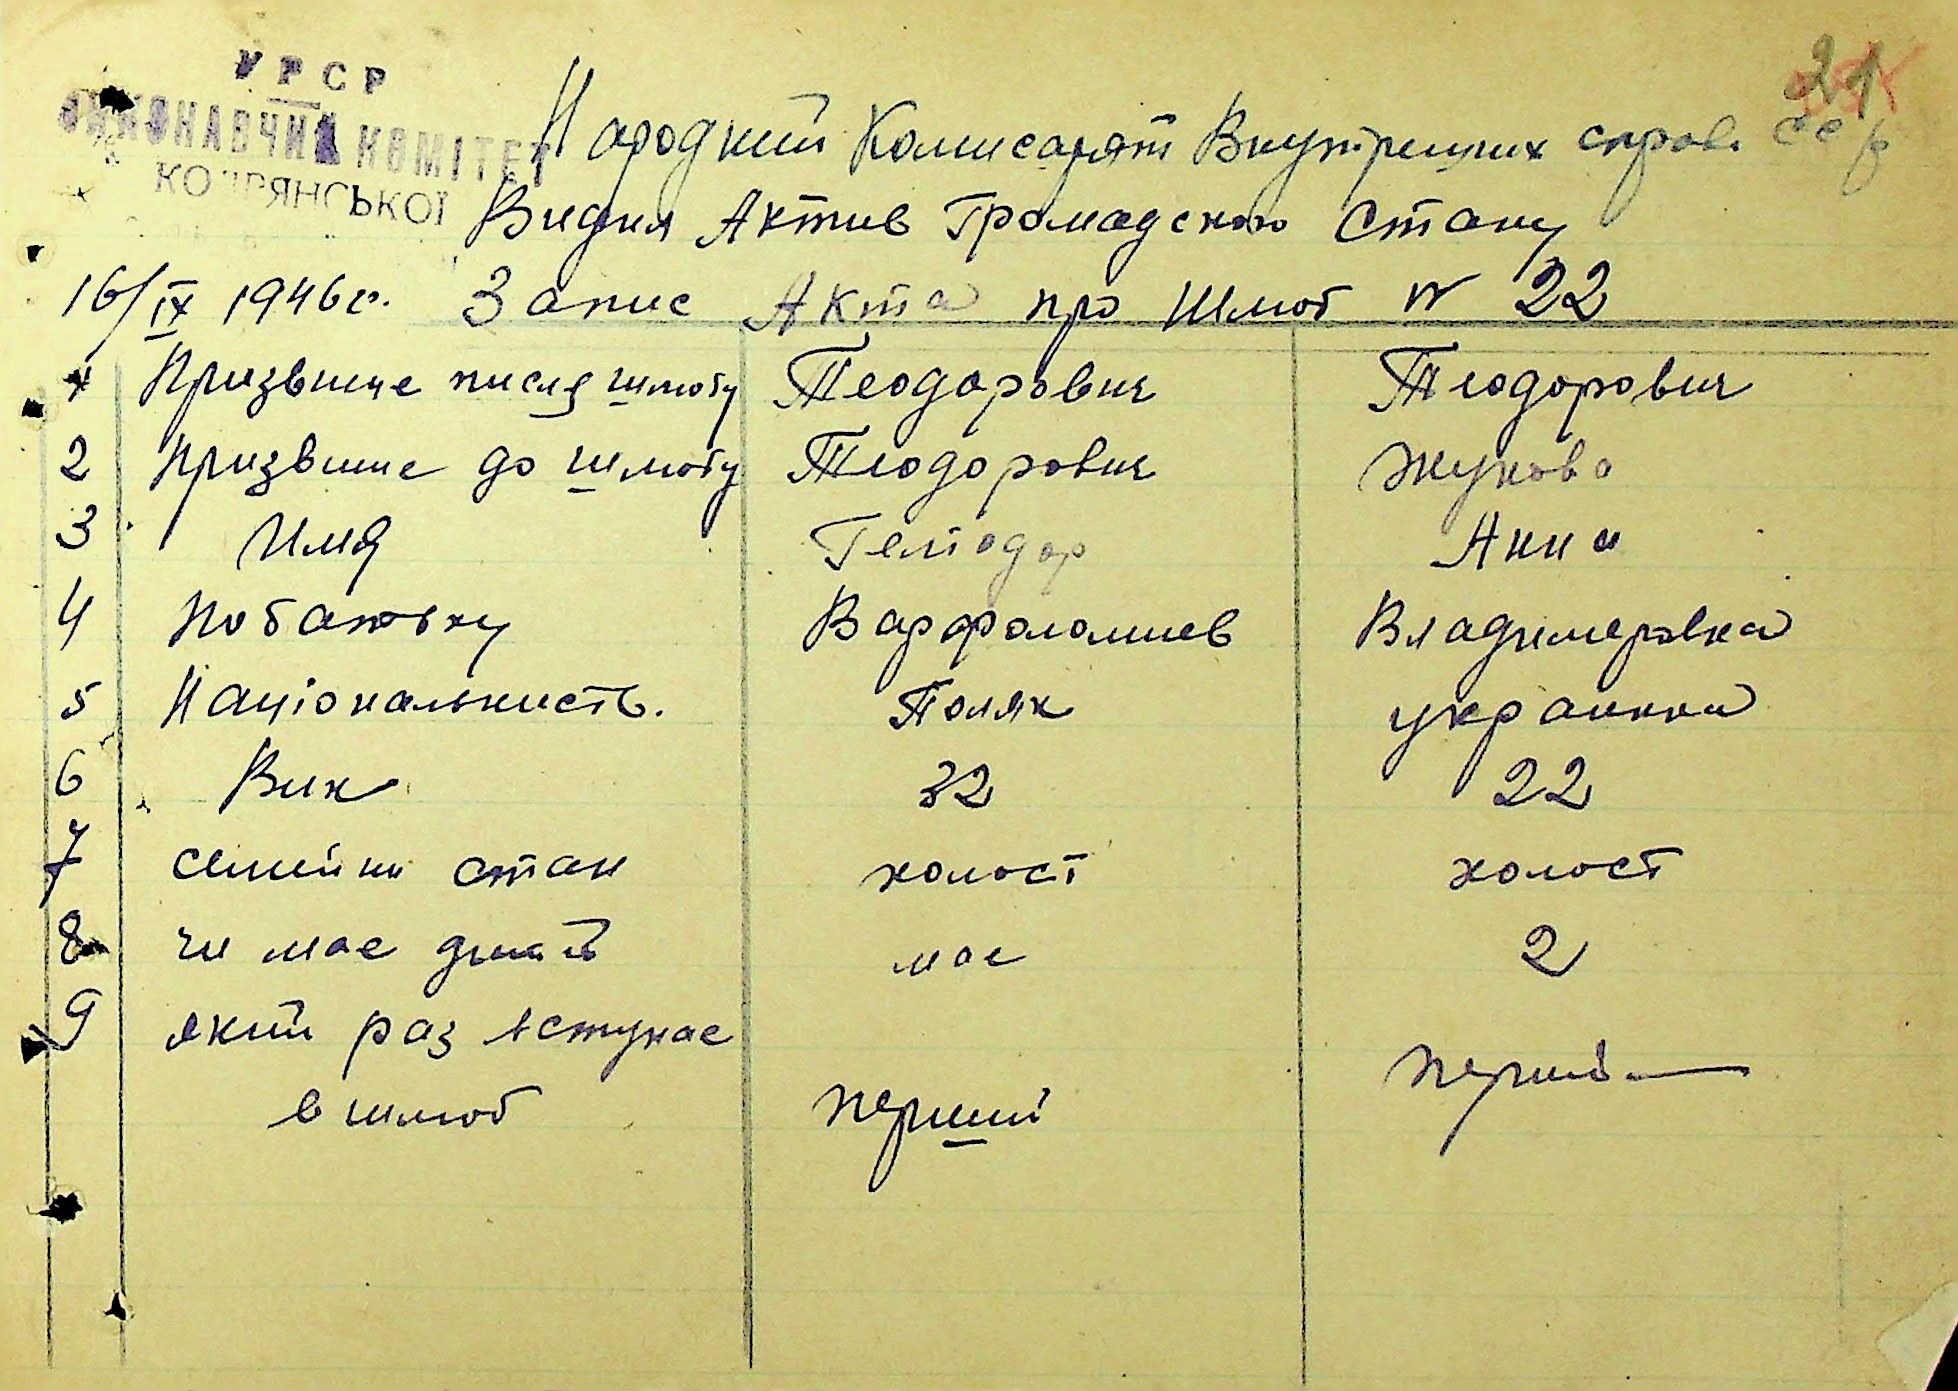 УРСР
ВИКОНАВЧИЙ КОМІТЕТ
21
Народний Комисариат Внутрених справ. ССР
Видил Актив Громадского Стану
16/IX 1946 г. Запис Акта про Шлюб № 22
1 Призвище писля шлюбу Теодорович Теодорович
2 Призвище до шлюбу Теодорович Жукова
3 Имя Геліодор Анна
4 По батьку Варфоломиев Владимеровна
5 Національнисть. Поляк украинка
6 Вик 32 22
7 семейни стан холост холост
8 чи мае дитей мае 2
9 який раз вступае
в шлюб перший перший